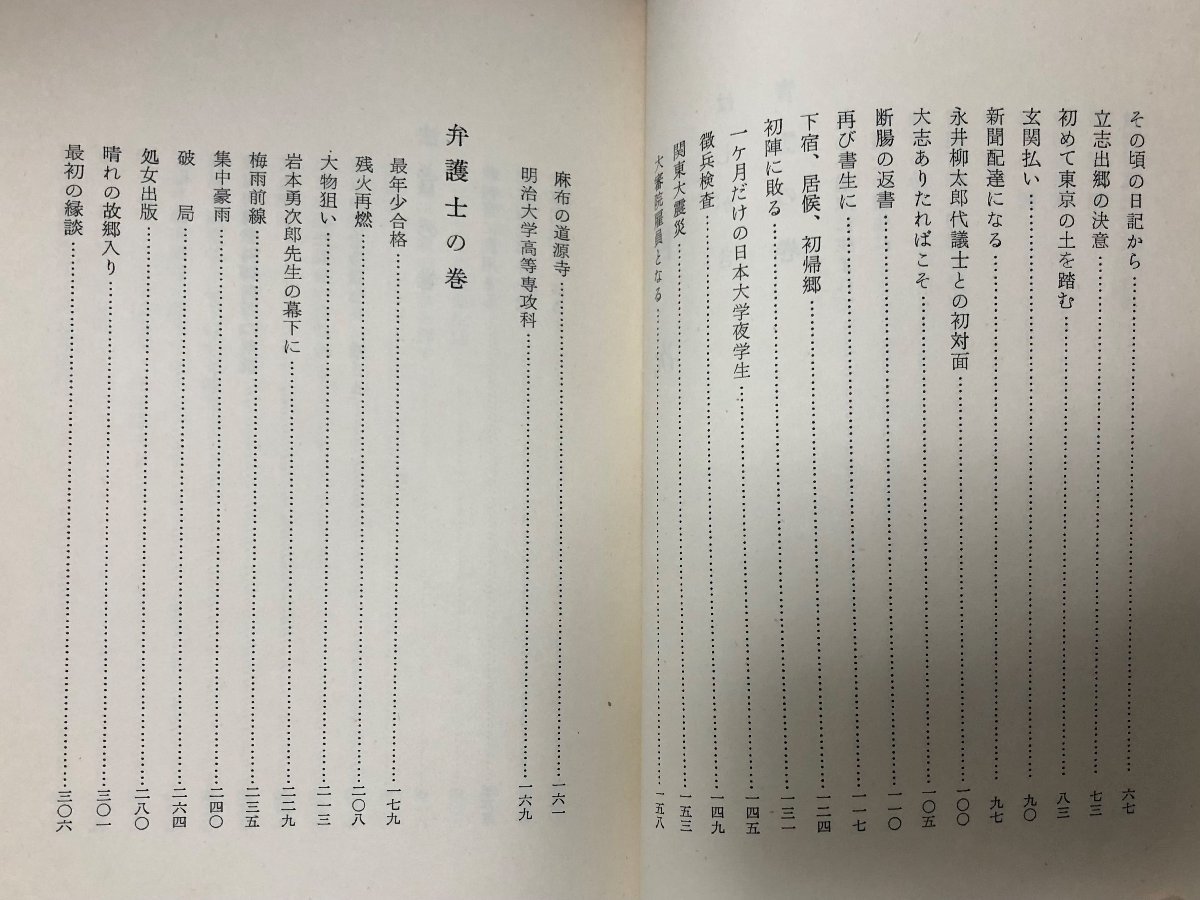 その頃の日記から……六七
立志出郷の決意……七三
初めて東京の土を踏む……八三
玄関払い……九〇
新聞配達になる……九七
永井柳太郎代議士との初対面……一〇〇
大志ありたればこそ……一〇五
断腸の返書……一一〇
再び書生に……一一七
下宿、居候、初帰郷……一二四
初陣に敗る……一三一
一ケ月だけの日本大学夜学生……一四五
徴兵検査……一四九
関東大震災……一五三
大審院雇員となる……一五八
麻布の道源寺……一六一
明治大学高等専攻科……一六九
弁護士の巻
最年少合格……一七九
残火再燃……二〇八
大物狙い……二一三
岩本勇次郎先生の幕下に……二二九
梅雨前線……二三五
集中豪雨……二四〇
破　局……二六四
処女出版……二八〇
晴れの故郷入り……三〇一
最初の縁談……三〇六